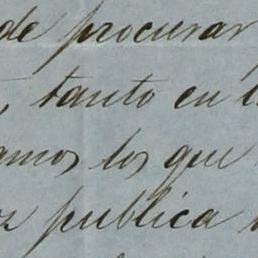 de procurar
, tanto en l
amos los que
publica